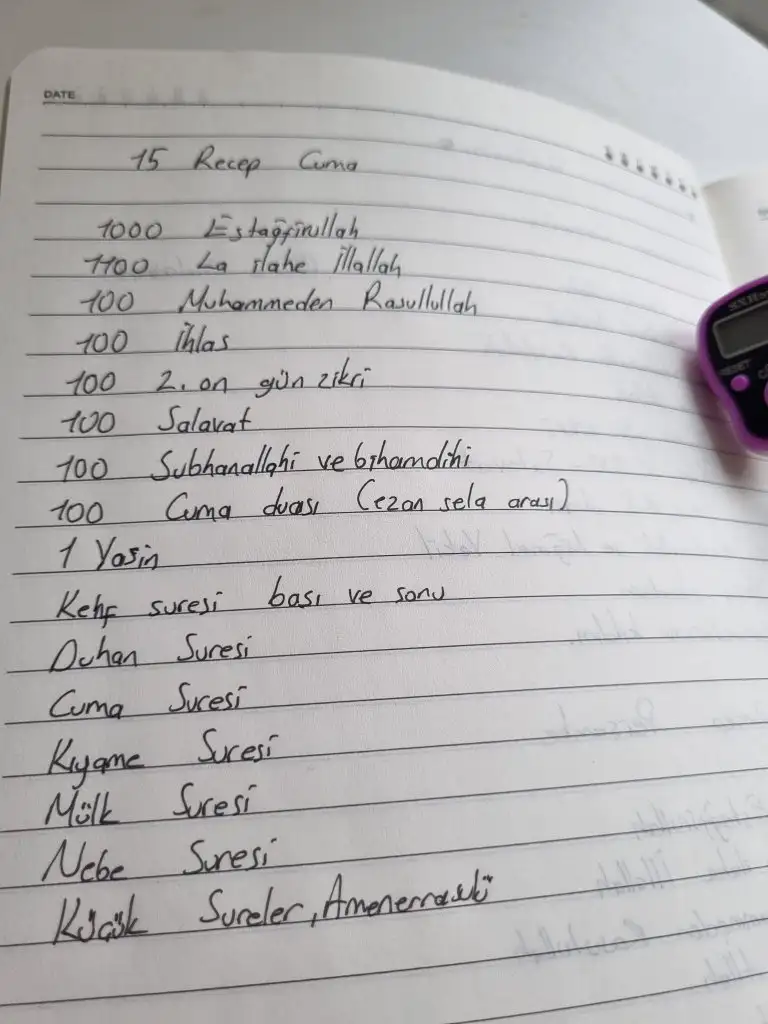 DATE
15 Recep Cuma
1000 Estağfirullah
1100 La ilahe İllallah
100 Muhammeden Rasullullah
100 İhlas
100 2. on gün zikri
100 Salavat
100 Subhanallahi ve bihamdihi
100 Cuma duası (ezan sela arası)
1 Yasin
Kehf suresi bası ve sonu
Duhan Suresi
Cuma Suresi
Kıyame Suresi
Mülk Suresi
Nebe Suresi
Küçük Sureler, Amenerrasulü
RESET